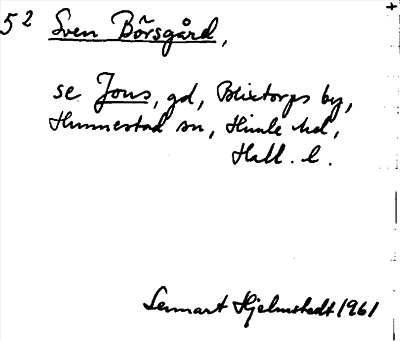 52 Sven Börsgård,
se Jons, gd, Blixtorps by,
Hunnestad sn, Himle hd,
Hall. l.
Lennart Hjelmstedt 1961